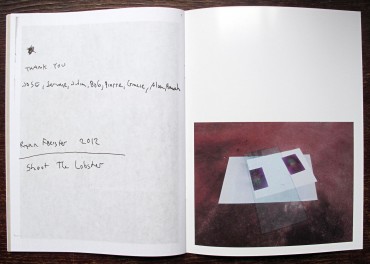 THANK YOU
JOSE, Jerome, Julian, Bob, Pierre, Gracie, Alan, Hannah
Ryan Foerster 2012
Shoot The Lobster